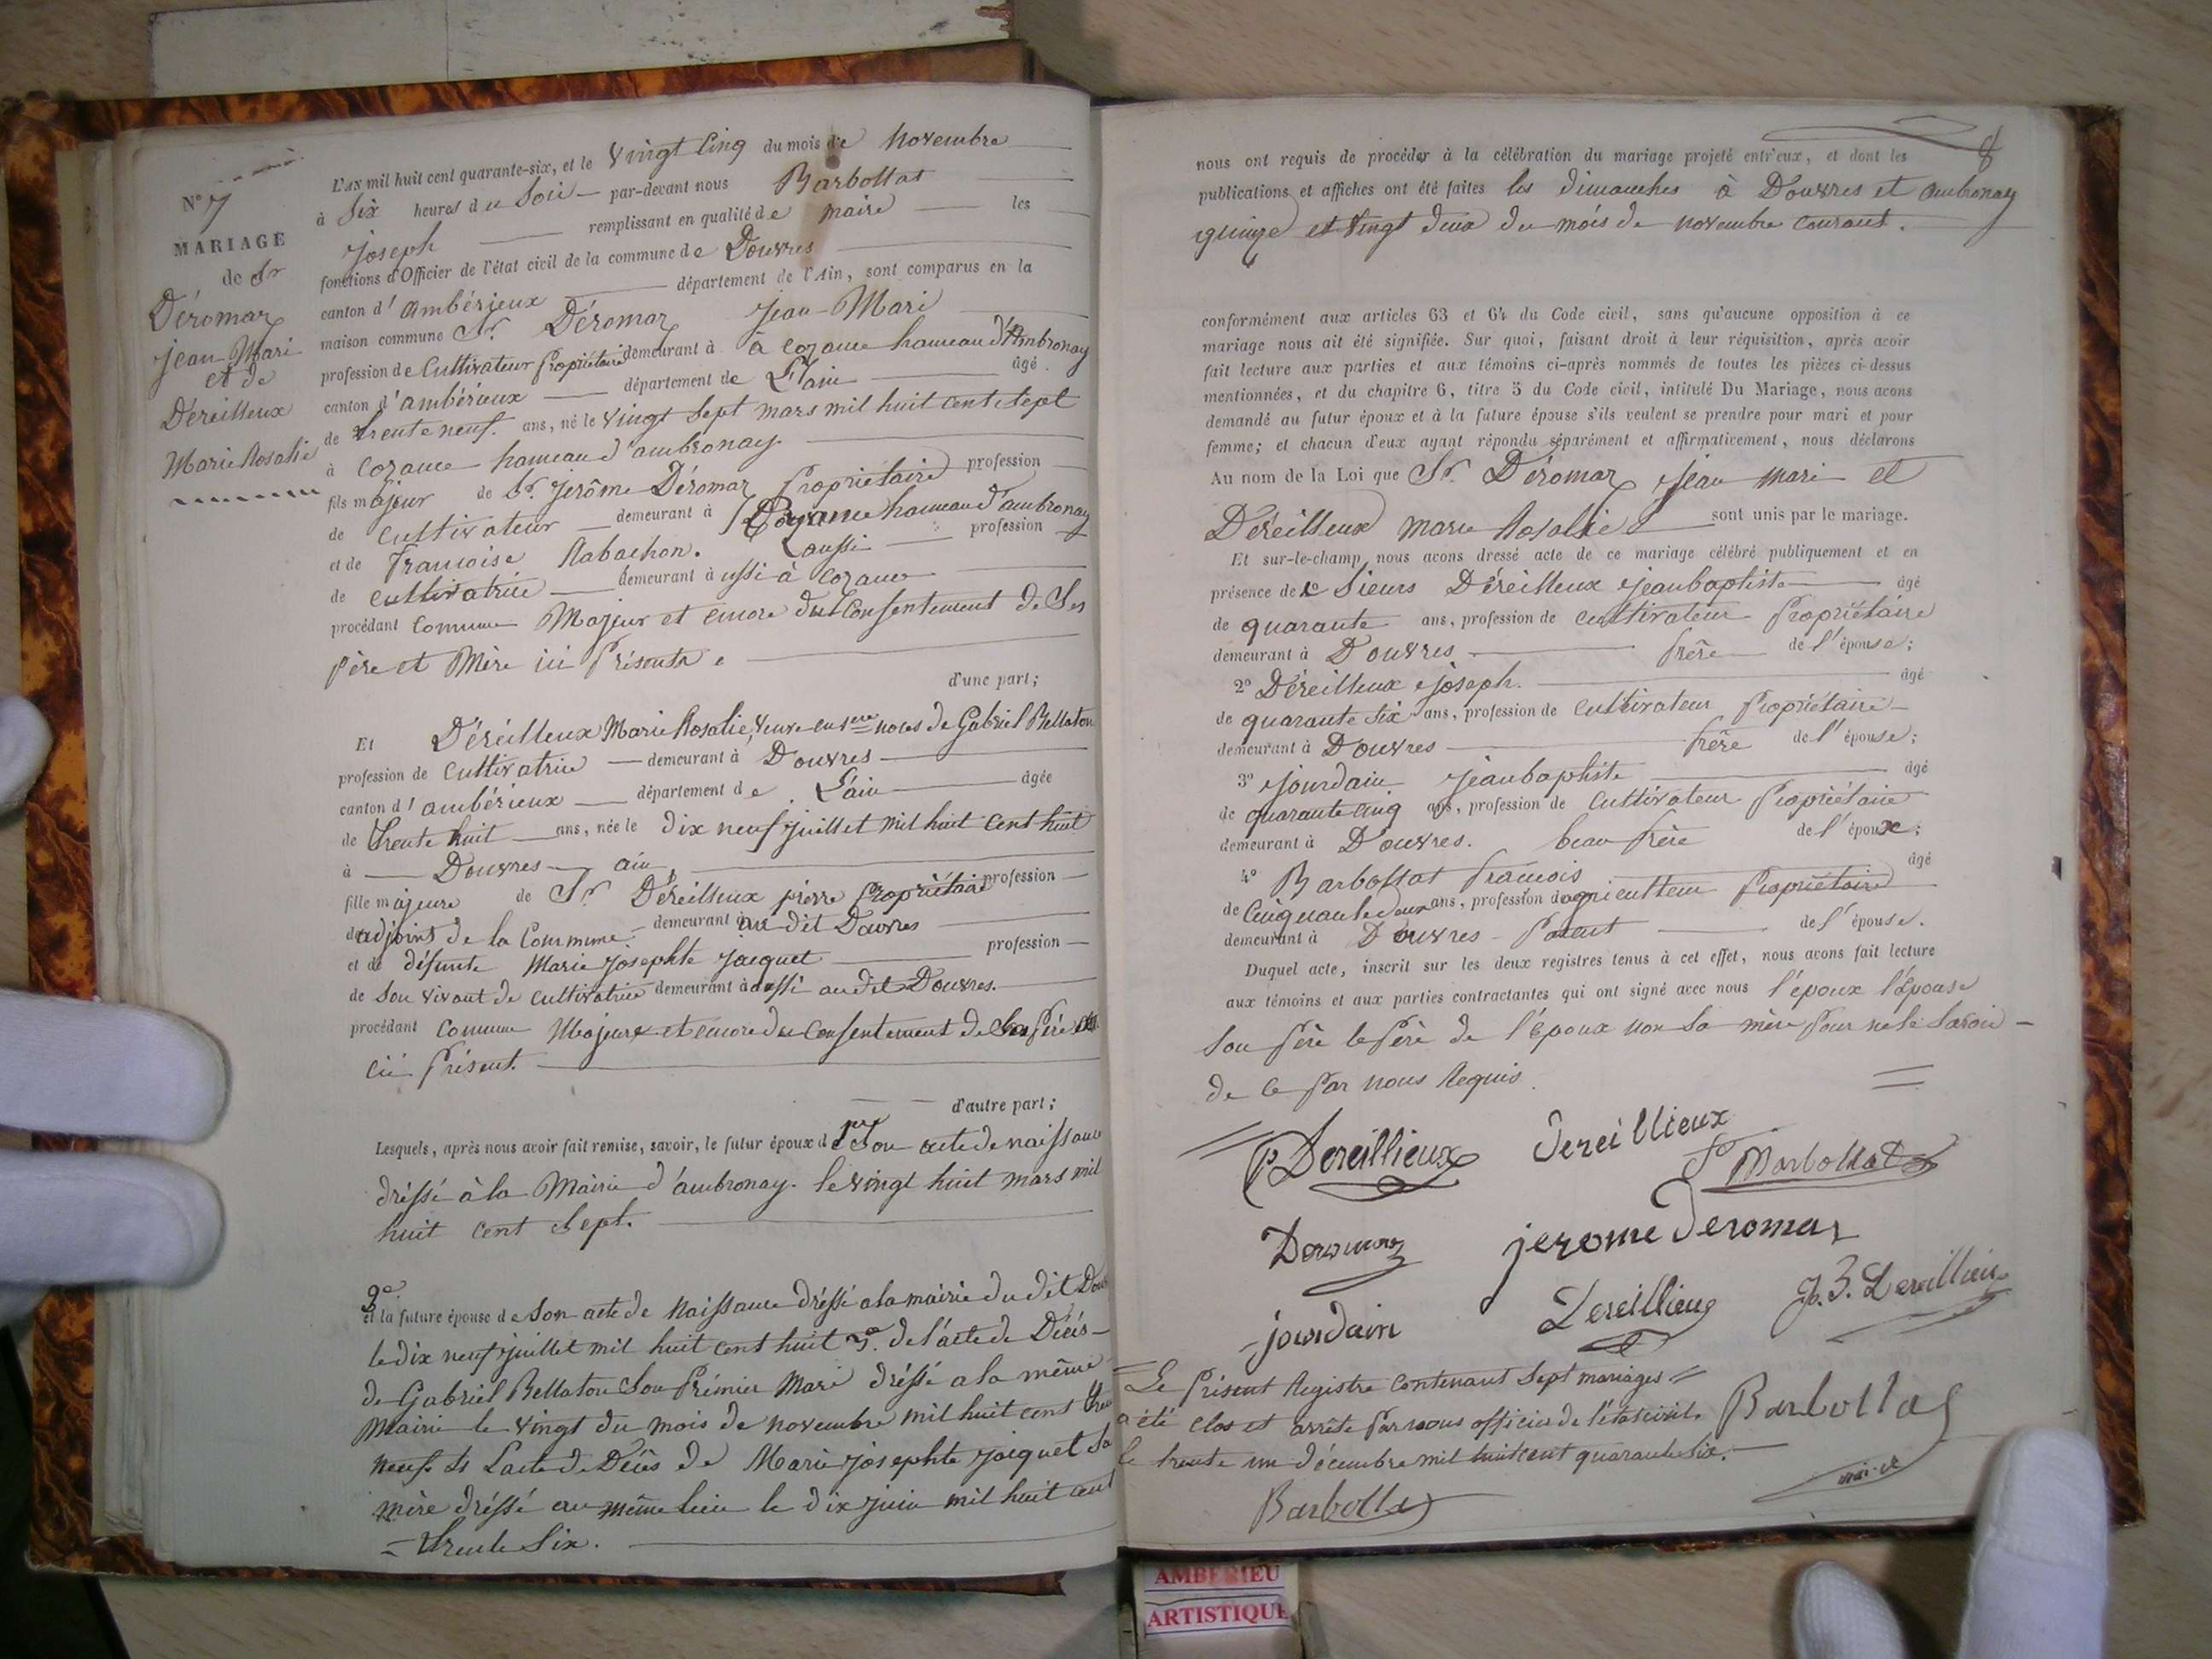 N° 7
MARIAGE
de Sr
Déromaz
Jean-Mari
et de
Déreilleux
Marie Rosalie
L'AN mil huit cent quarante-six, et le vingt Cinq du mois de Novembre
à Six heures du Soir par-devant nous Barbollat
Joseph remplissant en qualité de maire les
fonctions d'Officier de l'état civil de la commune de Douvres
canton d'ambérieux département de l'Ain, sont comparus en la
maison commune Sr. Déromaz Jean-Mari
profession de Cultivateur Propriétaire demeurant à à Cozance hameau d'Ambronay
canton d'ambérieux département de L'ain âgé
de trente neuf ans, né le vingt Sept mars mil huit cent Sept
à Cozance hameau d'ambronay
fils majeur de Sr. Jerôme Déromaz Propriétaire profession
de Cultivateur demeurant à Cozance hameau d'ambronay
et de Francoise Rabachon. aussi profession
de cultivatrice demeurant à ussi à Cozance
procédant comme Majeur et encore du Consentement de Ses
père et Mère ici Présents
d'une part;
Et Déreilleux Marie Rosalie, veuve en 1ere noces de Gabriel Bellaton
profession de Cultivatrice demeurant à Douvres
canton d'ambérieux département de L'ain âgée
de trente huit ans, née le dix neuf juillet mil huit cent huit
à Douvres ain
fille majeure de Sr Déreilleux pierre Propriétaire profession
de adjoint de la Commune demeurant à au dit Douvres
et de défunte Marie Josephte Jacquet profession
de Son vivant de cultivatrice demeurant à aussi au dit Douvres.
procédant comme Majeure et encore du Consentement de Son Père
ici Présent.
d'autre part;
Lesquels, après nous avoir fait remise, savoir, le futur époux de 1er Son acte de naissance
dréssé à la Mairie d'ambronay. le vingt huit mars mil
huit cent Sept.
2e
et la future épouse de Son acte de Naissance dréssé a la mairie du dit Dou
le dix neuf juillet mil huit cent huit 3e. de l'acte de Décés
de Gabriel Bellaton Son Prémier Mari dréssé a la même
Mairie le vingt du mois de novembre mil huit cent tren
neuf. et L'acte de Décés de Marie Josephte Jacquet Sa
mère dréssé au même lieu le dix juin mil huit cent
= trente Six.
8
nous ont requis de procéder à la célébration du mariage projeté entr'eux, et dont les
publications et affiches ont été faites les dimanches à Douvres et ambronay
quinze et vingt deux du mois de novembre courant.
conformément aux articles 63 et 64 du Code civil, sans qu'aucune opposition à ce
mariage nous ait été signifiée. Sur quoi, faisant droit à leur réquisition, après avoir
fait lecture aux parties et aux témoins ci-après nommés de toutes les pièces ci-dessus
mentionnées, et du chapitre 6, titre 5 du Code civil, intitulé Du Mariage, nous avons
demandé au futur époux et à la future épouse s'ils veulent se prendre pour mari et pour
femme; et chacun d'eux ayant répondu séparément et affirmativement, nous déclarons
Au nom de la Loi que Sr. Déromaz Jean Mari et
Déreilleux Marie Rosalie sont unis par le mariage.
Et sur-le-champ nous avons dressé acte de ce mariage célébré publiquement et en
présence de Sieurs Déreilleux Jean baptiste âgé
de quarante ans, profession de cultivateur Propriétaire
demeurant à Douvres frère de l'épouse;
2° Déreilleux Joseph. âgé
de quarante Six ans, profession de Cultivateur Propriétaire
demeurant à Douvres frère de l'épouse;
3° Jourdain Jean baptiste âgé
de quarante cinq ans, profession de Cultivateur Propriétaire
demeurant à Douvres. beau frère de l'époux;
4° Barbollat francois âgé
de Cinquante deux ans, profession d'agriculteur Propriétaire
demeurant à Douvres Parent de l'épouse.
Duquel acte, inscrit sur les deux registres tenus à cet effet, nous avons fait lecture
aux témoins et aux parties contractantes qui ont signé avec nous l'époux l'épouse
Son Père le Père de l'époux non Sa mère Pour ne le Savoir
de ce Par nous Requis.
P Dereillieux Dereillieux
F Barbollat
Deromaz jerome Deromaz
jourdain Dereillieux J. B. Dereillieux
Le Présent Registre contenant Sept mariages
a été Clos et arrêté Par nous officier de l'état civil.
le trente un décembre mil huit cent quarante Six.
Barbollat
maire
Barbollat
AMBERIEU
ARTISTIQUE